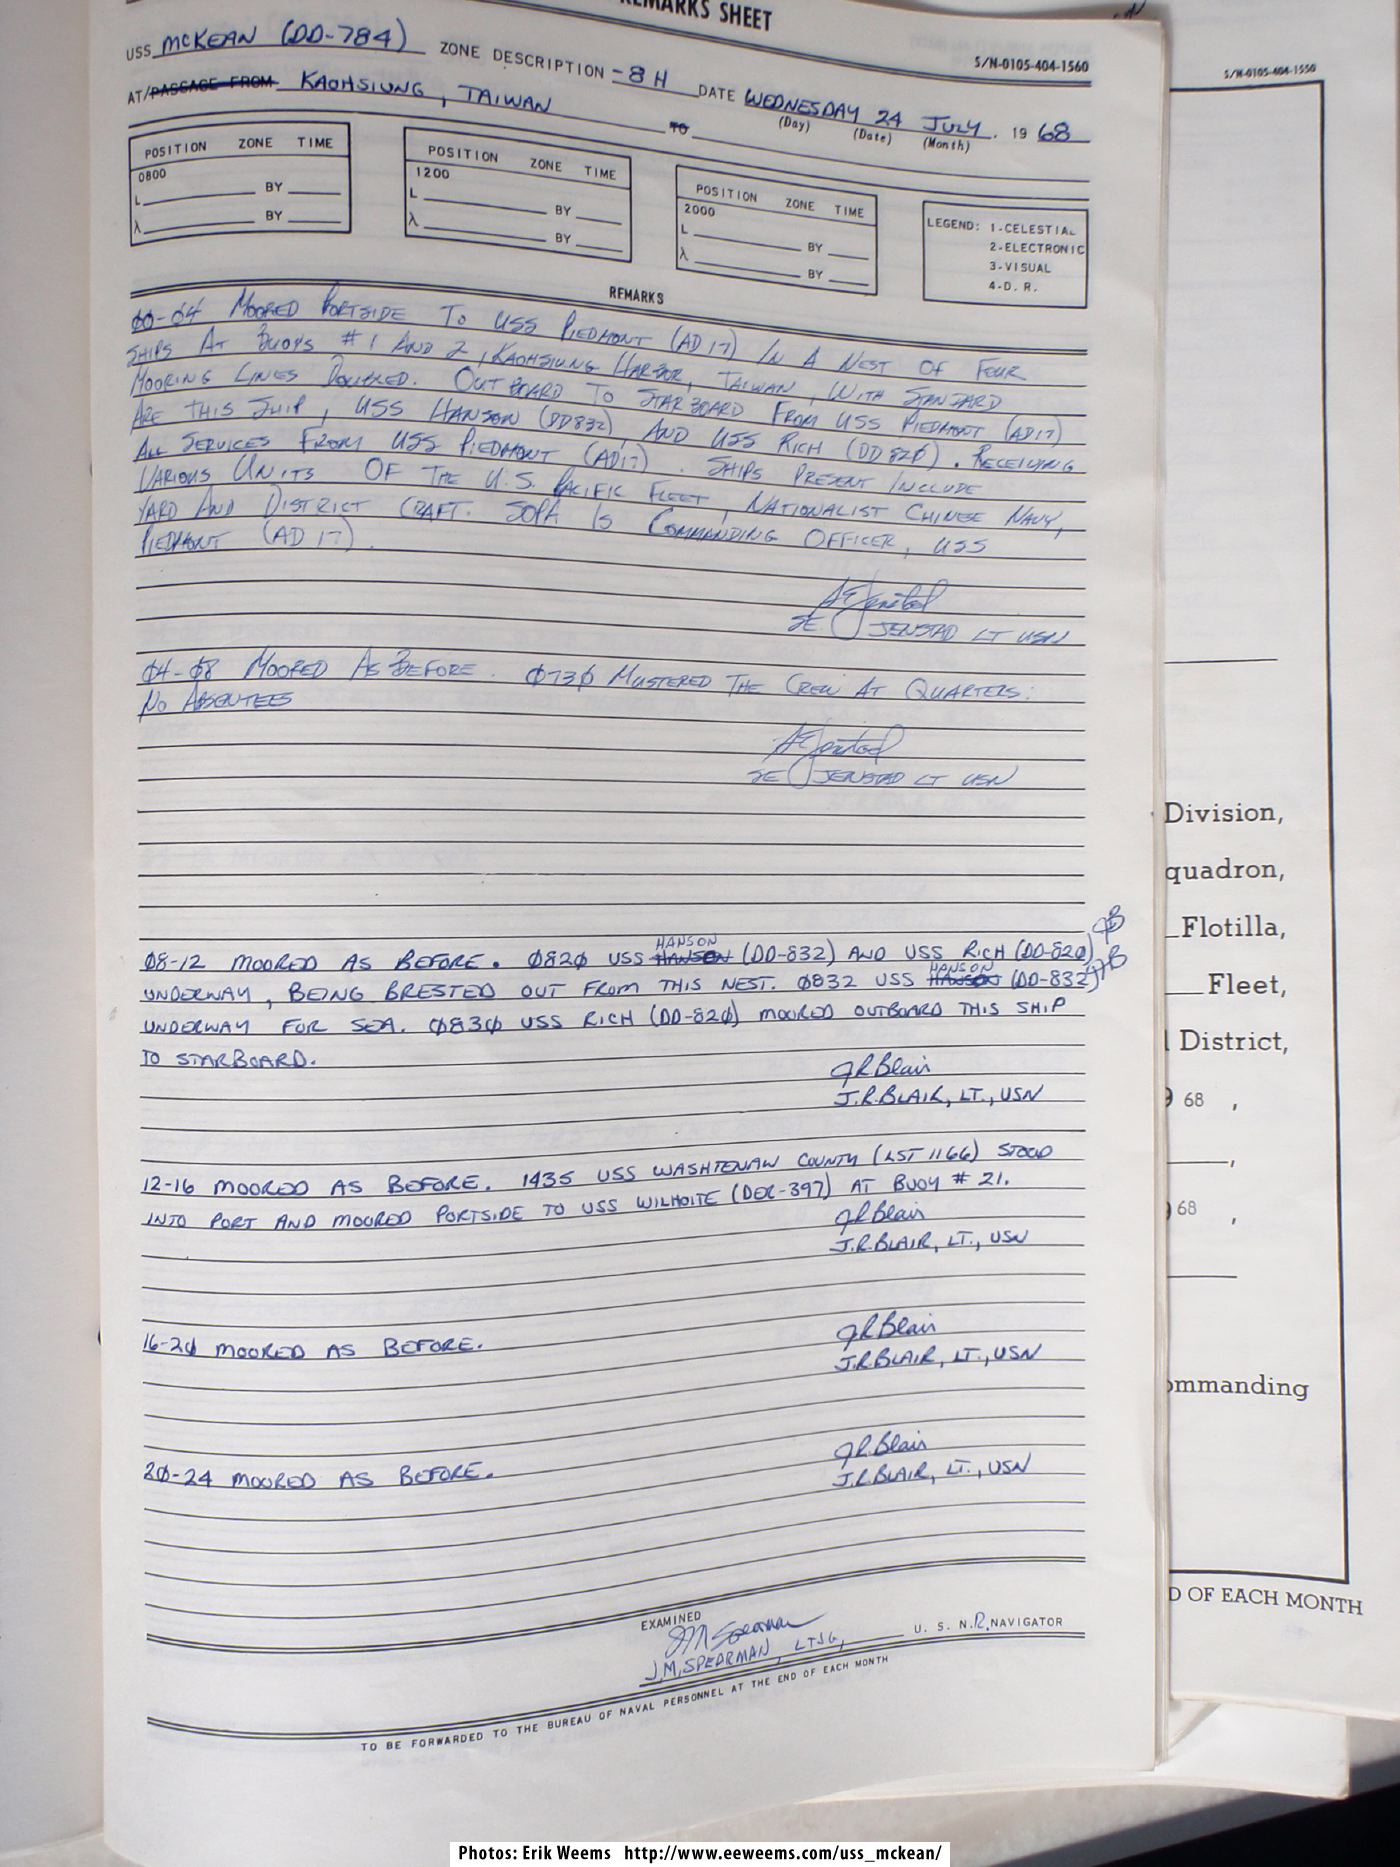 REMARKS SHEET
S/N-0105-404-1560
USS MCKEAN (DD-784) ZONE DESCRIPTION -8 H DATE WEDNESDAY 24 JULY, 19 68
(Day) (Date) (Month)
AT/PASSAGE FROM KAOHSIUNG, TAIWAN TO
POSITION ZONE TIME
0800
L BY
λ BY
POSITION ZONE TIME
1200
L BY
λ BY
POSITION ZONE TIME
2000
L BY
λ BY
LEGEND: 1-CELESTIAL
2-ELECTRONIC
3-VISUAL
4-D. R.
REMARKS
00-04 MOORED PORTSIDE TO USS PIEDMONT (AD 17) IN A NEST OF FOUR
SHIPS AT BUOYS #1 AND 2, KAOHSIUNG HARBOR, TAIWAN, WITH STANDARD
MOORING LINES DOUBLED. OUTBOARD TO STARBOARD FROM USS PIEDMONT (AD17)
ARE THIS SHIP, USS HANSON (DD832), AND USS RICH (DD820). RECEIVING
ALL SERVICES FROM USS PIEDMONT (AD17). SHIPS PRESENT INCLUDE
VARIOUS UNITS OF THE U.S. PACIFIC FLEET, NATIONALIST CHINESE NAVY,
YARD AND DISTRICT CRAFT. SOPA IS COMMANDING OFFICER, USS
PIEDMONT (AD 17).
SE Jenstad
SE JENSTAD LT USN
04-08 MOORED AS BEFORE. 0730 MUSTERED THE CREW AT QUARTERS:
NO ABSENTEES
SE Jenstad
SE JENSTAD LT USN
08-12 MOORED AS BEFORE. 0820 USS HANSON HANSON (DD-832) AND USS RICH (DD-820) JB
UNDERWAY, BEING BRESTED OUT FROM THIS NEST. 0832 USS HANSON HANSON (DD-832) JB
UNDERWAY FOR SEA. 0830 USS RICH (DD-820) MOORED OUTBOARD THIS SHIP
TO STARBOARD.
JR Blair
J.R. BLAIR, LT., USN
12-16 MOORED AS BEFORE. 1435 USS WASHTENAW COUNTY (LST 1166) STOOD
INTO PORT AND MOORED PORTSIDE TO USS WILHOITE (DER-397) AT BUOY # 21.
JR Blair
J.R. BLAIR, LT., USN
16-20 MOORED AS BEFORE.
JR Blair
J.R. BLAIR, LT., USN
20-24 MOORED AS BEFORE.
JR Blair
J.R. BLAIR, LT., USN
EXAMINED
JM Spearman
J.M. SPEARMAN, LTJG, U. S. N.R. NAVIGATOR
TO BE FORWARDED TO THE BUREAU OF NAVAL PERSONNEL AT THE END OF EACH MONTH
S/N-0105-404-1550
Division,
quadron,
Flotilla,
Fleet,
District,
68 ,
,
68 ,
ommanding
D OF EACH MONTH
Photos: Erik Weems http://www.eeweems.com/uss_mckean/